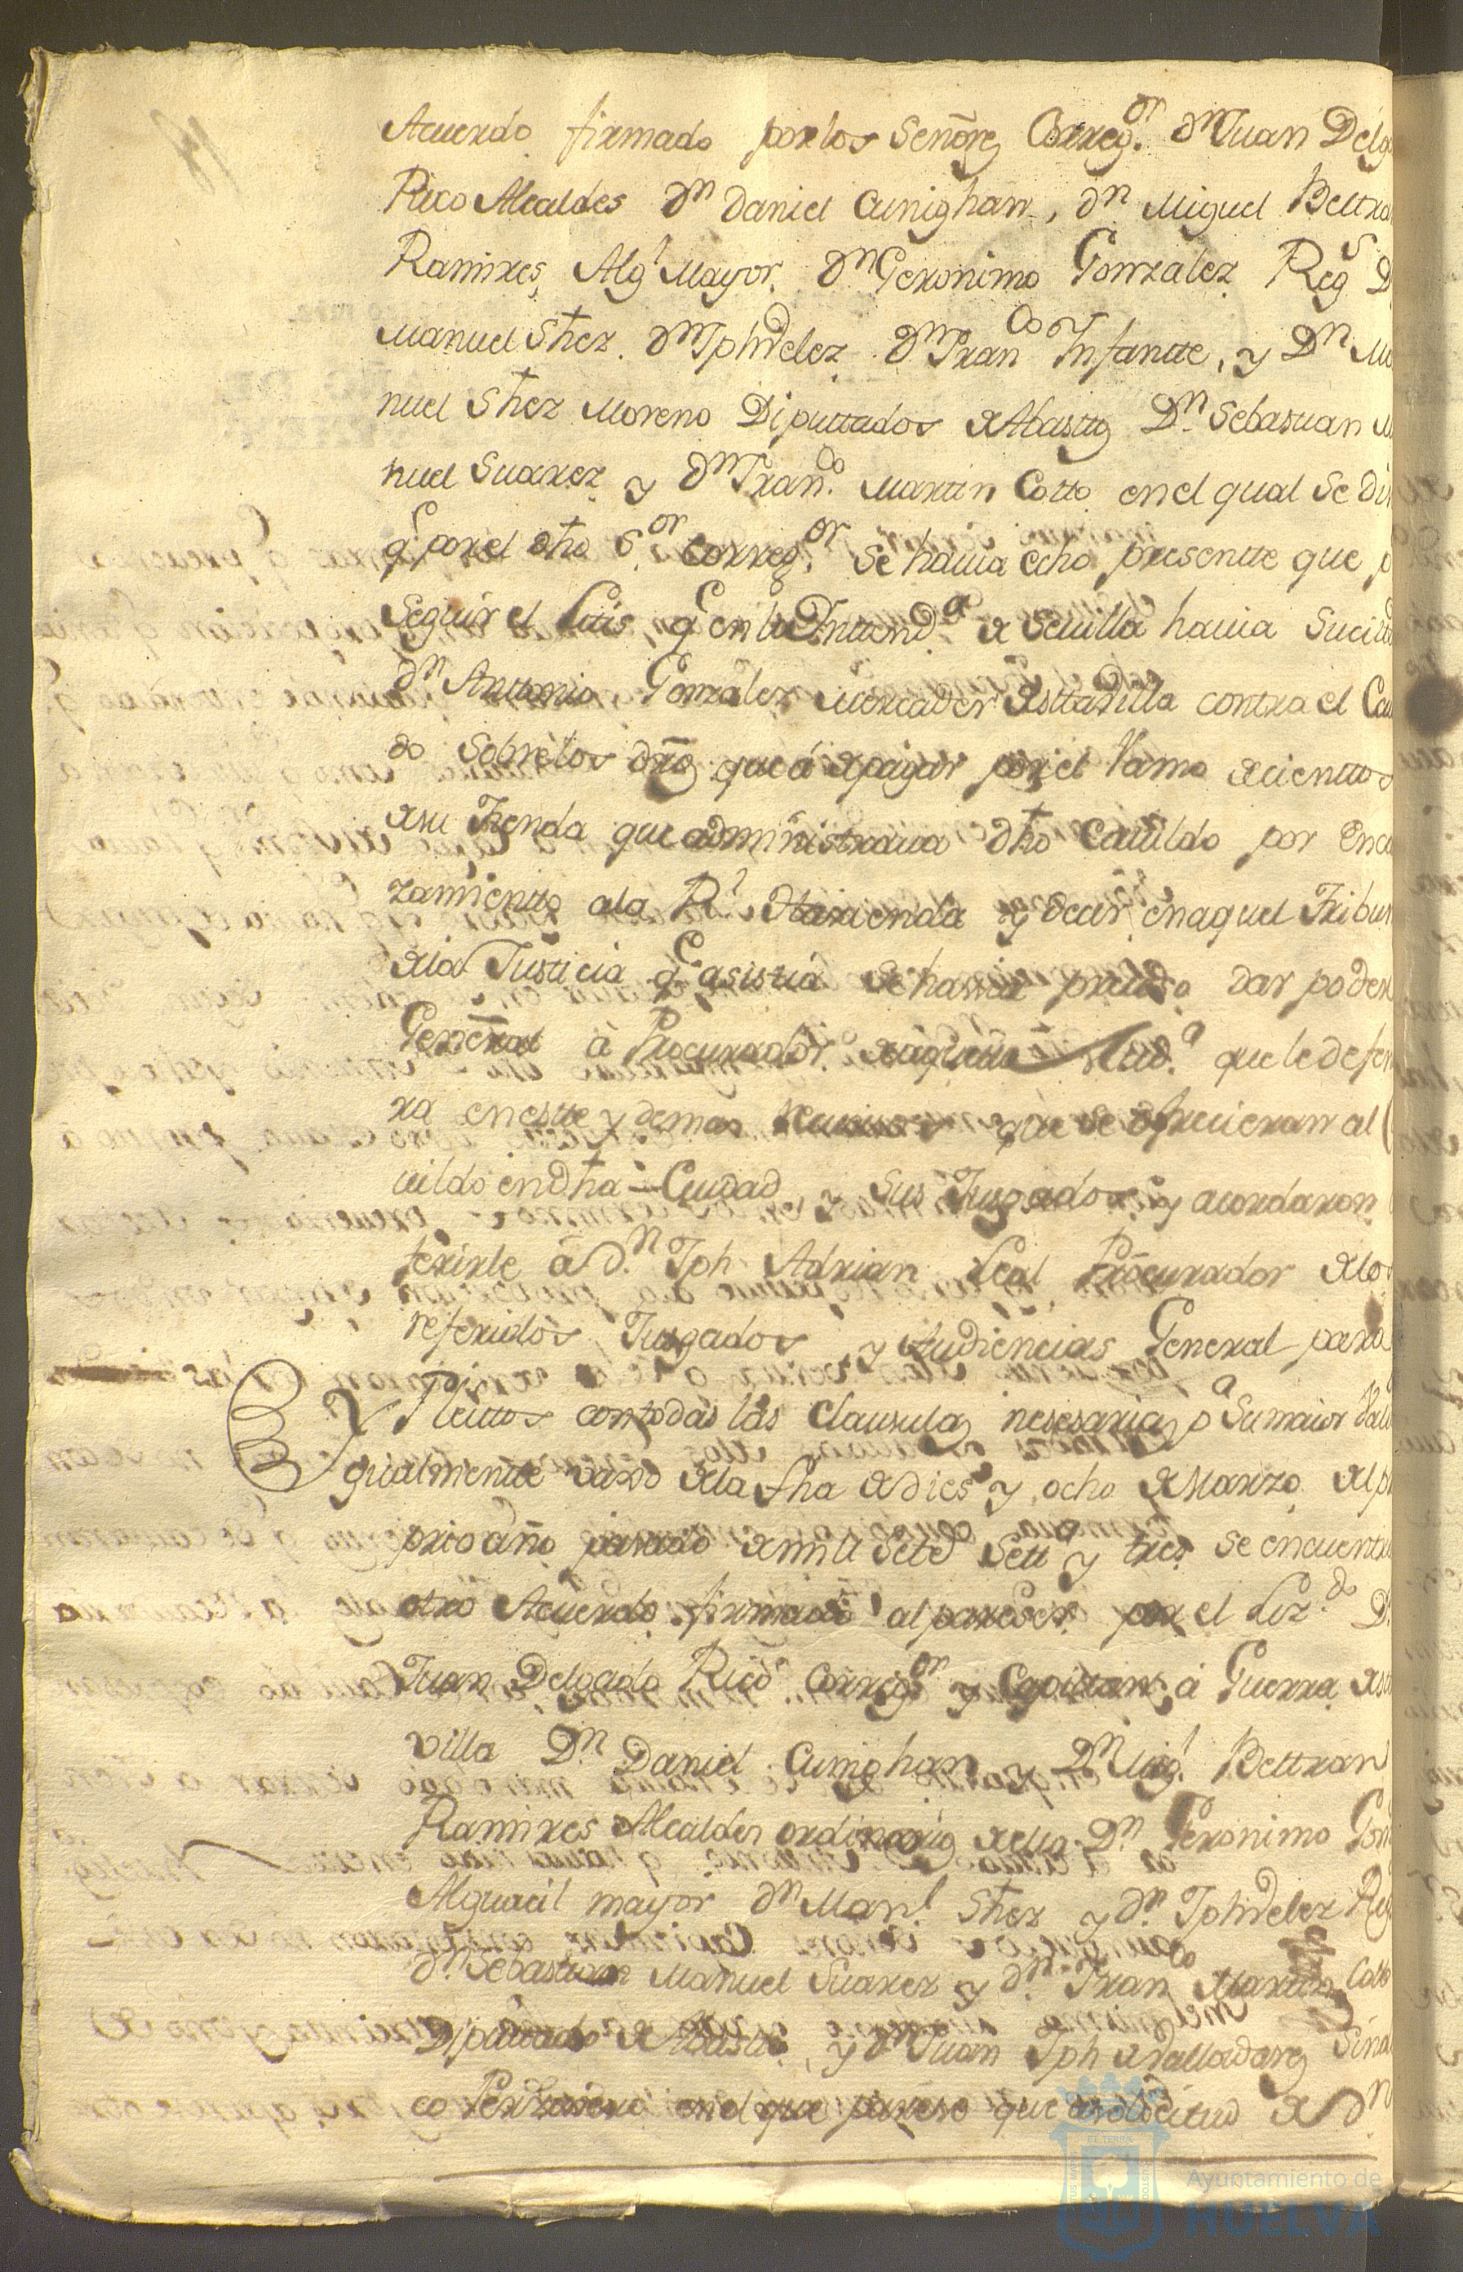 Acuerdo firmado por los Señores Correg.or Dn Juan Delg
Rico Alcaldes Dn Daniel Cunighan, Dn Miguel Beltra
Ramires, Algl Mayor Dn Geronimo Gonzalez Regs D
Manuel Shez. Dn Jph Velez Dn Franco Infantte, y Dn Ma
nuel Shez Moreno Diputtados de Abastos Dn Sebastian M
nuel Suarez y Dn Fran.do Martin Cotto en el qual se di
q por el dho S.or Correg.or se havia echo presentte que p
seguir el Litis q en la Yntend.a de Sevilla havia sucita
dn Anttonio Gonzalez Mercader de esttavilla contra el Cav
do sobre los dros que á de pagar por el Ramo de cienttos
de su Tienda que administrava dho Cavildo por Enca
zamientto a la Rl Hazienda y decir en aquel Tribun
de la Justicia q asistia se havia preciso dar poder
General à Procurador de aquella Aud.a que le defen
ra en estte y demas que se ofrecieran al C
vildo en dha Ciudad y sus Jusgados y acordaron
ferirle à D.n Jph Adrian Leal Procurador de los
referidos Jusgados y Audiencias General para
Pleittos con todas las clausulas nesesarias pa su maior Vali
Y gualmentte vaxo de la fha de dies y ocho de Marzo del p
prio año pasado de mil Setes Sett y tres se encuentra
otro Acuerdo firmado al pareser por el Liz.do D.
Juan Delgado Rico Correg.or y Capittan à Guerra de est
villa D.n Daniel Cunighan y Dn Migl Belttran
Ramires Alcaldes ordinarios de ella Dn Geronimo Gon
Alguacil mayor Dn Manl Shez y dn Jph Velez Reg
dn Sebastian Manuel Suarez y dn Franco Martin Cotto
Diputtados de Abastos, y Dn Juan Jph de Valladares Sindi
co Personero en el que parese que a solicitud de Dn
Ayuntamiento de
HUELVA